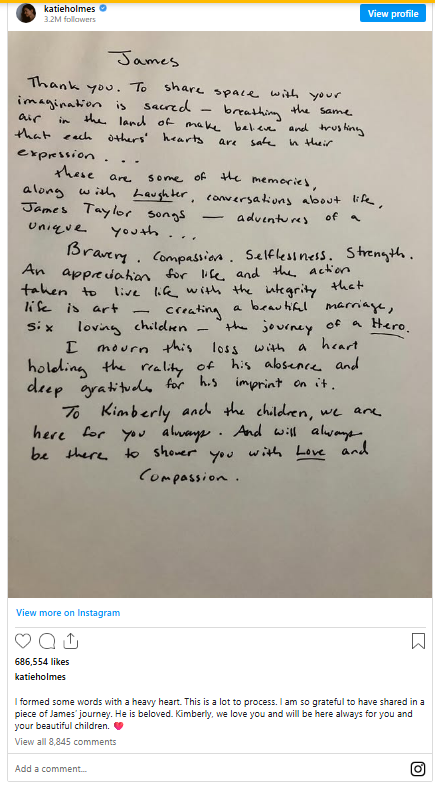 katieholmes
3.2M followers
View profile
James
Thank you. To share space with your
imagination is sacred — breathing the same
air in the land of make believe and trusting
that each others' hearts are safe in their
expression . . .
these are some of the memories,
along with Laughter, conversations about life,
James Taylor songs — adventures of a
unique youth . . .
Bravery. Compassion. Selflessness. Strength.
An appreciation for life and the action
taken to live life with the integrity that
life is art — creating a beautiful marriage,
six loving children — the journey of a Hero.
I mourn this loss with a heart
holding the reality of his absence and
deep gratitude for his imprint on it.
To Kimberly and the children, we are
here for you always. And will always
be there to shower you with Love and
Compassion.
View more on Instagram
686,554 likes
katieholmes
I formed some words with a heavy heart. This is a lot to process. I am so grateful to have shared in a
piece of James' journey. He is beloved. Kimberly, we love you and will be here always for you and
your beautiful children. ❤️
View all 8,845 comments
Add a comment...